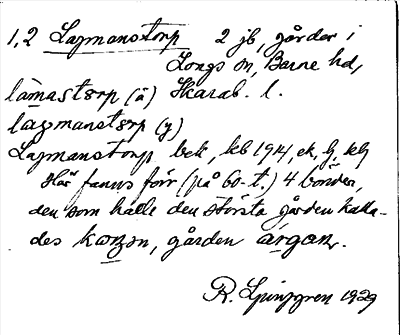 1, 2 Lagmanstorp 2 jb, gårdar i
Longs sn, Barne hd,
lamastɔrp (ä) Skarab. l.
lagmanstɔrp (y)
Lagmanstorp bek, kb 1941, ek, kb
Här fanns förr (på 60-t.) 4 bönder,
den som hade den största gården kalla-
des kɔŋən, gården argan.
R. Ljunggren 1929